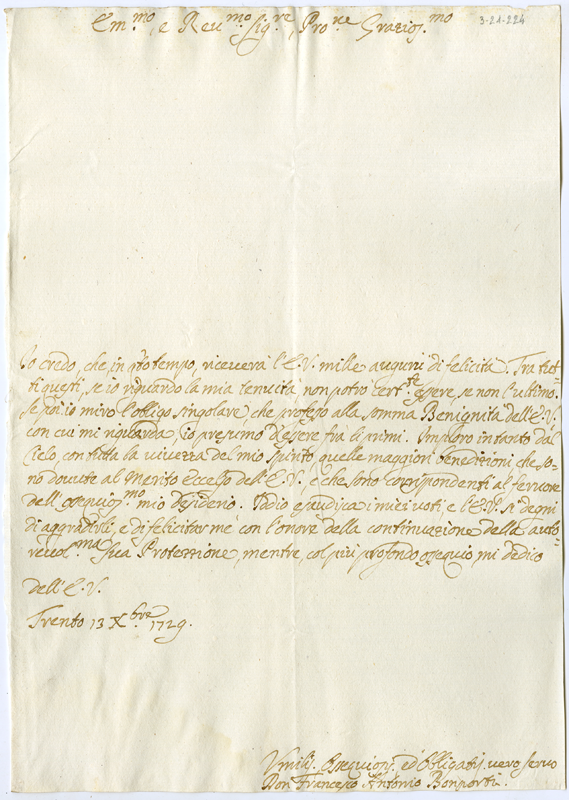 Em.mo, e Rev.mo Sig.re, Pro.ne Grazios.mo
3-21-224
Io credo, che in q̃to tempo, riceverà l'E.V. mille augurij di felicità. Tra tut-
ti questi, se io riguardo la mia tenuità non potrò cert.te essere, se non l'ultimo.
Se poi io miro l'obligo singolare, che professo alla somma Benignità dell'E.V.
con cui mi riguarda, io presumo d'essere frà li primi. Imploro intanto dal
Cielo, con tutta la vivezza del mio spirito quelle maggiori benedizioni, che so-
no dovute al Merito Eccelso dell'E.V., e che sono corrispondenti al fervore
dell'ossequios.mo mio desiderio. Iddio esaudisca i miei voti, e l'E.V. si degni
di aggradirli, e di felicitarme con l'onore della continuazione della auto-
revol.ma sua Protezzione, mentre, col più profondo ossequio, mi dedico
dell'E.V.
Trento 13 X.bre 1729.
Umilis. Ossequios. ed Obbligatis. vero servo
Don Francesco Antonio Bonporti.